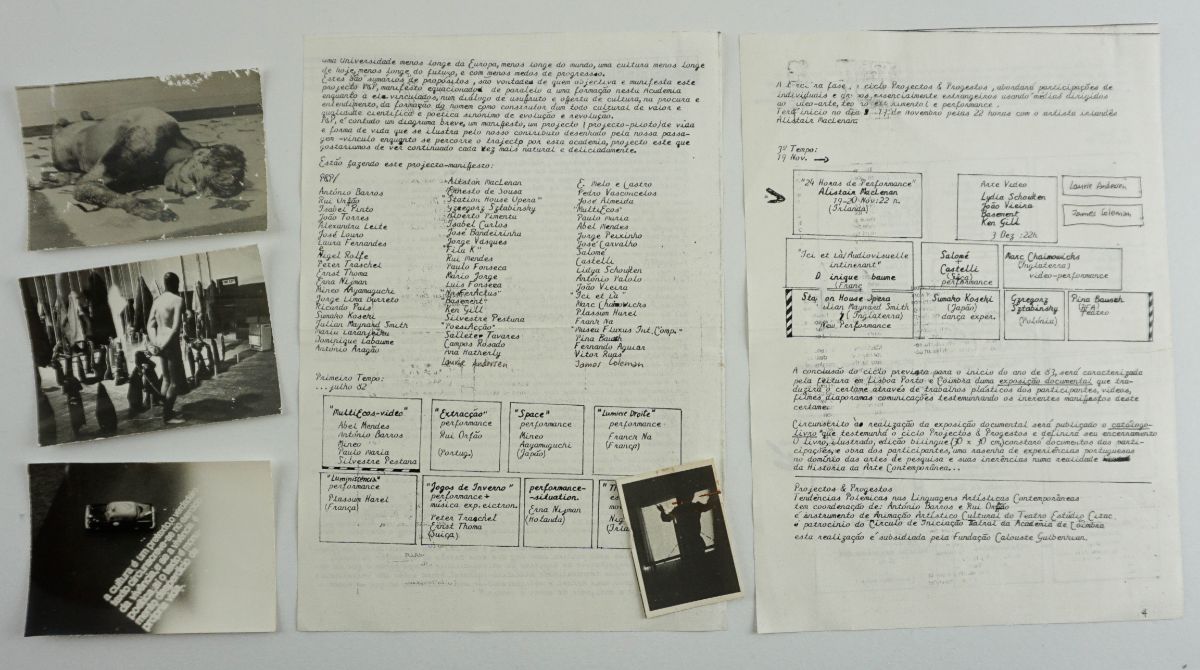 uma Universidade menos longe da Europa, menos longe do mundo, uma cultura menos longe
de hoje, menos longe do futuro, e com menos medos de progresso.
Estes são sumários de propósitos, são vontades de quem objectiva e manifesta este
projecto P&P, manifesto equacionado de paralelo a uma formação nesta Academia
enquanto a ele vinculados, num diálogo de usufruto e oferta de cultura, na procura e
entendimento, da formação do homem como construtor dum todo cultural de valor e
qualidade científica e poética sinónimo de evolução e revolução.
P&P, é contudo um diagrama breve, um manifesto, um projecto (projecto-piloto) de vida
e forma de vida que se ilustra pelo nosso contributo desenhado pela nossa passa-
gem-vínculo enquanto se percorre o trajecto por esta academia, projecto este que
gostaríamos de ver continuado cada vez mais natural e deliciadamente.
Estão fazendo este projecto-manifesto:
P&P/
António Barros
Rui Orfão
Isabel Pinto
João Torres
Alexandra Leite
José Louro
Laura Fernandes
Nigel Rolfe
Peter Traschel
Ernst Thoma
Erna Nijman
Mineo Aayamaguchi
Jorge Lima Barreto
Ricardo Pais
Sumako Koseki
Julian Maynard Smith
Mário Laranjeira
Dominique Labaume
António Aragão
Alistair MacLenan
Ernesto de Sousa
"Station House Opera"
Gzregorz Sztabinsky
Alberto Pimenta
Isabel Carlos
José Bandeirinha
Jorge Vasques
"Fila K"
Rui Mendes
Paulo Fonseca
Mário Jorge
Luís Fonseca
Basement"
Ken Gill
Silvestre Pestana
"PoesiAcção"
Sallete Tavares
Campos Rosado
Ana Hatherly
Laurie Anderson
E. Melo e Castro
Pedro Vasconcelos
José Almeida
MultiEcos"
Paulo Maria
Abel Mendes
Jorge Peixinho
José Carvalho
Salomé
Castelli
Lidya Schouten
António Palolo
João Vieira
"Ici et Là"
Marc Chaimovichs
Plassum Harel
Franck Na
"Museu Fluxus Int. Comp."
Pina Bausch
Fernando Aguiar
Vitor Ruas
James Coleman
Primeiro Tempo:
...julho 82
"MultiEcos-video"
Abel Mendes
António Barros
Mineo
Paulo Maria
Silvestre Pestana
"Extracção"
performance
Rui Orfão
(Portug.)
"Space"
performance
Mineo
Aayamaguchi
(Japão)
"Lumine Droite"
performance
Franck Na
(França)
"Luminatencis"
performance
Plassum Harel
(França)
"Jogos de Inverno"
performance +
música exp. elctron.
Peter Traschel
Ernst Thoma
(Suiça)
performance-
situation.
Erna Nijman
(Holanda)
fase, o ciclo Projectos & Progestos, abordará participações de
individuais e grupos, essencialmente estrangeiros usando "médias dirigidos
ao vídeo-arte, teatro experimental e performance.
Terá início no dia de novembro pelas 22 horas com o artista irlandês
Alistair MacLenan.
3º Tempo:
19 Nov. →
"24 Horas de Performance"
Alistair MacLenan
19-20 Nov: 22 h.
(Irlanda)
Arte Video
Lydia Schouten
João Vieira
Basement
Ken Gill
3 Dez: 22h
Laurie Anderson
James Coleman
"Ici et Là/Audiovisuelle
intinerant"
Salomé
+
Castelli
(Suiça)
performance
Marc Chaimovichs
(Inglaterra)
video-performance
Station House Opera
Julian Maynard Smith
(Inglaterra)
New Performance
Sumako Koseki
(Japão)
dança exper.
Gzregorz
Sztabinsky
(Polónia)
Pina Bausch
(RFA)
Teatro
A conclusão do ciclo prevista para o início do ano de 83, será caracterizada
pela feitura em Lisboa Porto e Coimbra duma exposição documental que tra-
duzirá o certame através de trabalhos plásticos dos participantes, vídeos,
filmes, diaporamas comunicações testemunhando os inerentes manifestos deste
certame.
Circunscrito ao realização da exposição documental será publicado o catálogo-
livro que testemunha o ciclo Projectos & Progestos e definirá seu encerramento
O livro, ilustrado, edição bilingue (30 x 30 cm), constará documentos das parti-
cipações, e obra dos participantes, uma rasenha de experiências portuguesas
no domínio das artes de pesquisa e suas inerências numa realidade
da História da Arte Contemporânea...
Projectos & Progestos
Tendências Polémicas nas Linguagens Artísticas Contemporâneas
tem coordenação de: António Barros e Rui Orfão
é instrumento de Animação Artístico Cultural do Teatro Estúdio Citac
é patrocínio do Circulo de Iniciação Teatral da Academia de Coimbra
esta realização é subsidiada pela Fundação Calouste Gulbenkian.
4